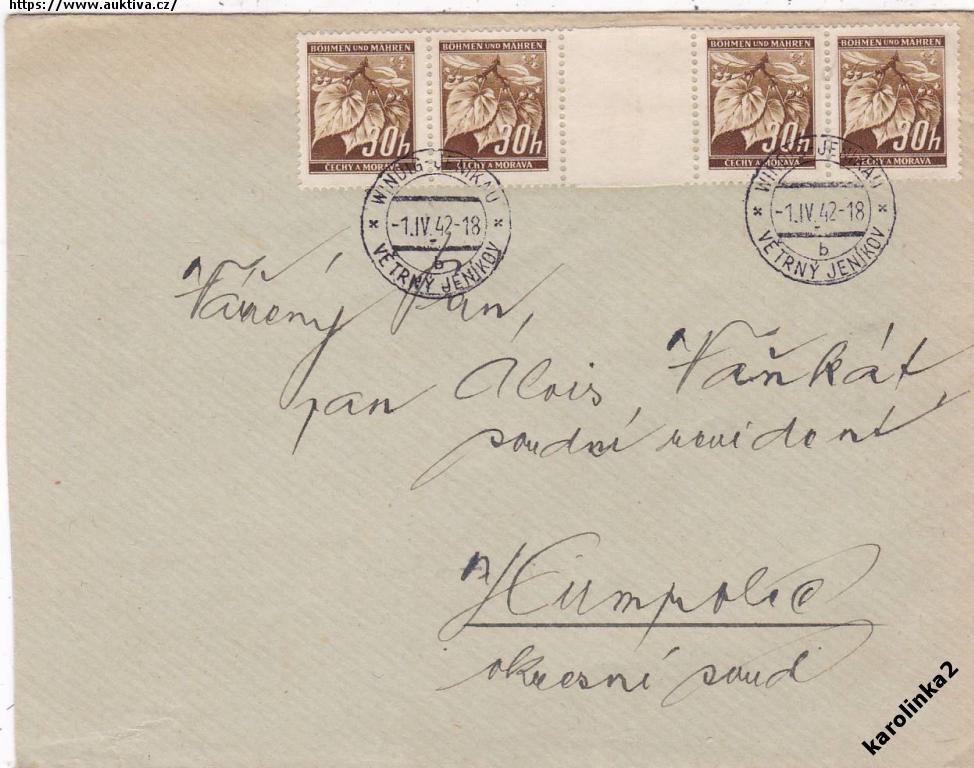 https://www.auktiva.cz/
BÖHMEN UND MÄHREN
30h
ČECHY A MORAVA
BÖHMEN UND MÄHREN
30h
ČECHY A MORAVA
BÖHMEN UND MÄHREN
30h
ČECHY A MORAVA
BÖHMEN UND MÄHREN
30h
ČECHY A MORAVA
WINDIG-JENIKAU
-1.IV.42-18
b
VĚTRNÝ JENÍKOV
WINDIG-JENIKAU
-1.IV.42-18
b
VĚTRNÝ JENÍKOV
Vážený Pan,
pan Alois Vaňkát,
soudní revident
Humpolec
okresní soud
karolinka2